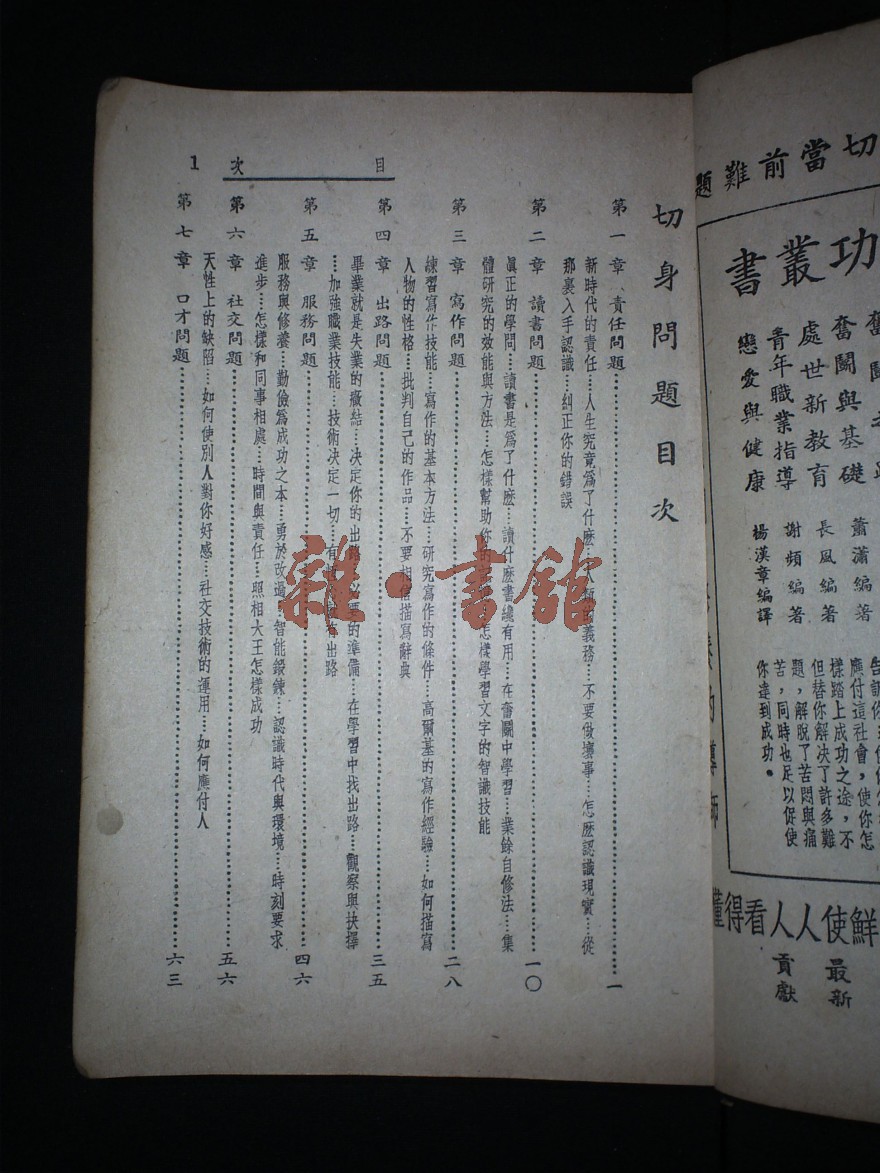 切身問題目次
目次 1
第一章 責任問題……一
新時代的責任…人生究竟爲了什麽…人類的義務…不要做壞事…怎麽認識現實…從
那裏入手認識…糾正你的錯誤
第二章 讀書問題……一〇
眞正的學問…讀書是爲了什麽…讀什麽書纔有用…在奮鬭中學習…業餘自修法…集
體研究的效能與方法…怎樣幫助你的 怎樣學習文字的智識技能
第三章 寫作問題……二八
練習寫作技能…寫作的基本方法…研究寫作的條件…高爾基的寫作經驗…如何描寫
人物的性格…批判自己的作品…不要相信描寫辭典
第四章 出路問題……三五
畢業就是失業的癥結…决定你的出路…必要的準備…在學習中找出路…觀察與抉擇
…加強職業技能…技術决定一切…有 有出路
第五章 服務問題……四六
服務與修養…勤儉爲成功之本…勇於改過…智能鍛鍊…認識時代與環境…時刻要求
進步…怎樣和同事相處…時間與責任…照相大王怎樣成功
第六章 社交問題……五六
天性上的缺陷…如何使別人對你好感…社交技術的運用…如何應付人
第七章 口才問題……六三
雜·書館
切當前難題
功叢書
奮鬭與基礎 蕭瀟編著
處世新教育 長風編著
青年職業指導 謝頻編著
戀愛與健康 楊漢章編譯
應付這社會,使你怎
樣踏上成功之途,不
但替你解决了許多難
題,解脫了苦悶與痛
苦,同時也足以促使
你達到成功。
鮮使人人看得懂
最新
貢獻